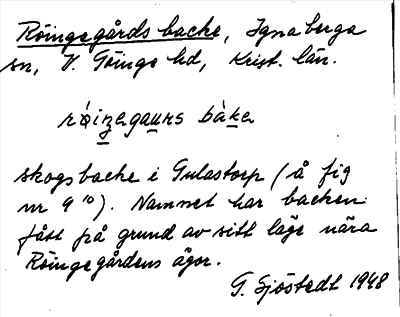 Röingegårds backe, Ignaberga
sn, V. Göinge hd, Krist. län.
röingegaurs bàke
skogsbacke i Gulastorp (å fig
nr 9 10). Namnet har backen
fått på grund av sitt läge nära
Röingegårdens ägor.
G. Sjöstedt 1948